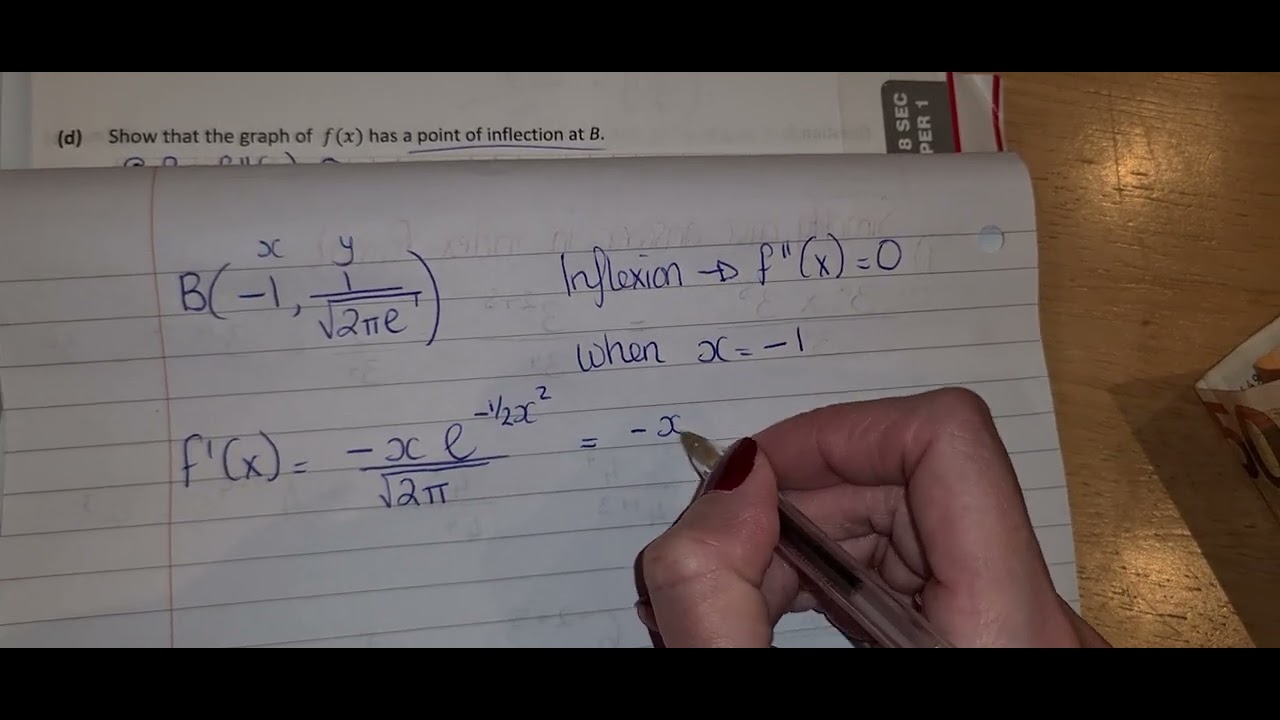 (d) Show that the graph of f(x) has a point of inflection at B.
8 SEC
PER 1
x y
B(-1, 1/√2πe)
Inflexion → f''(x) = 0
when x = -1
f'(x) = -x e^-1/2x² / √2π = -x